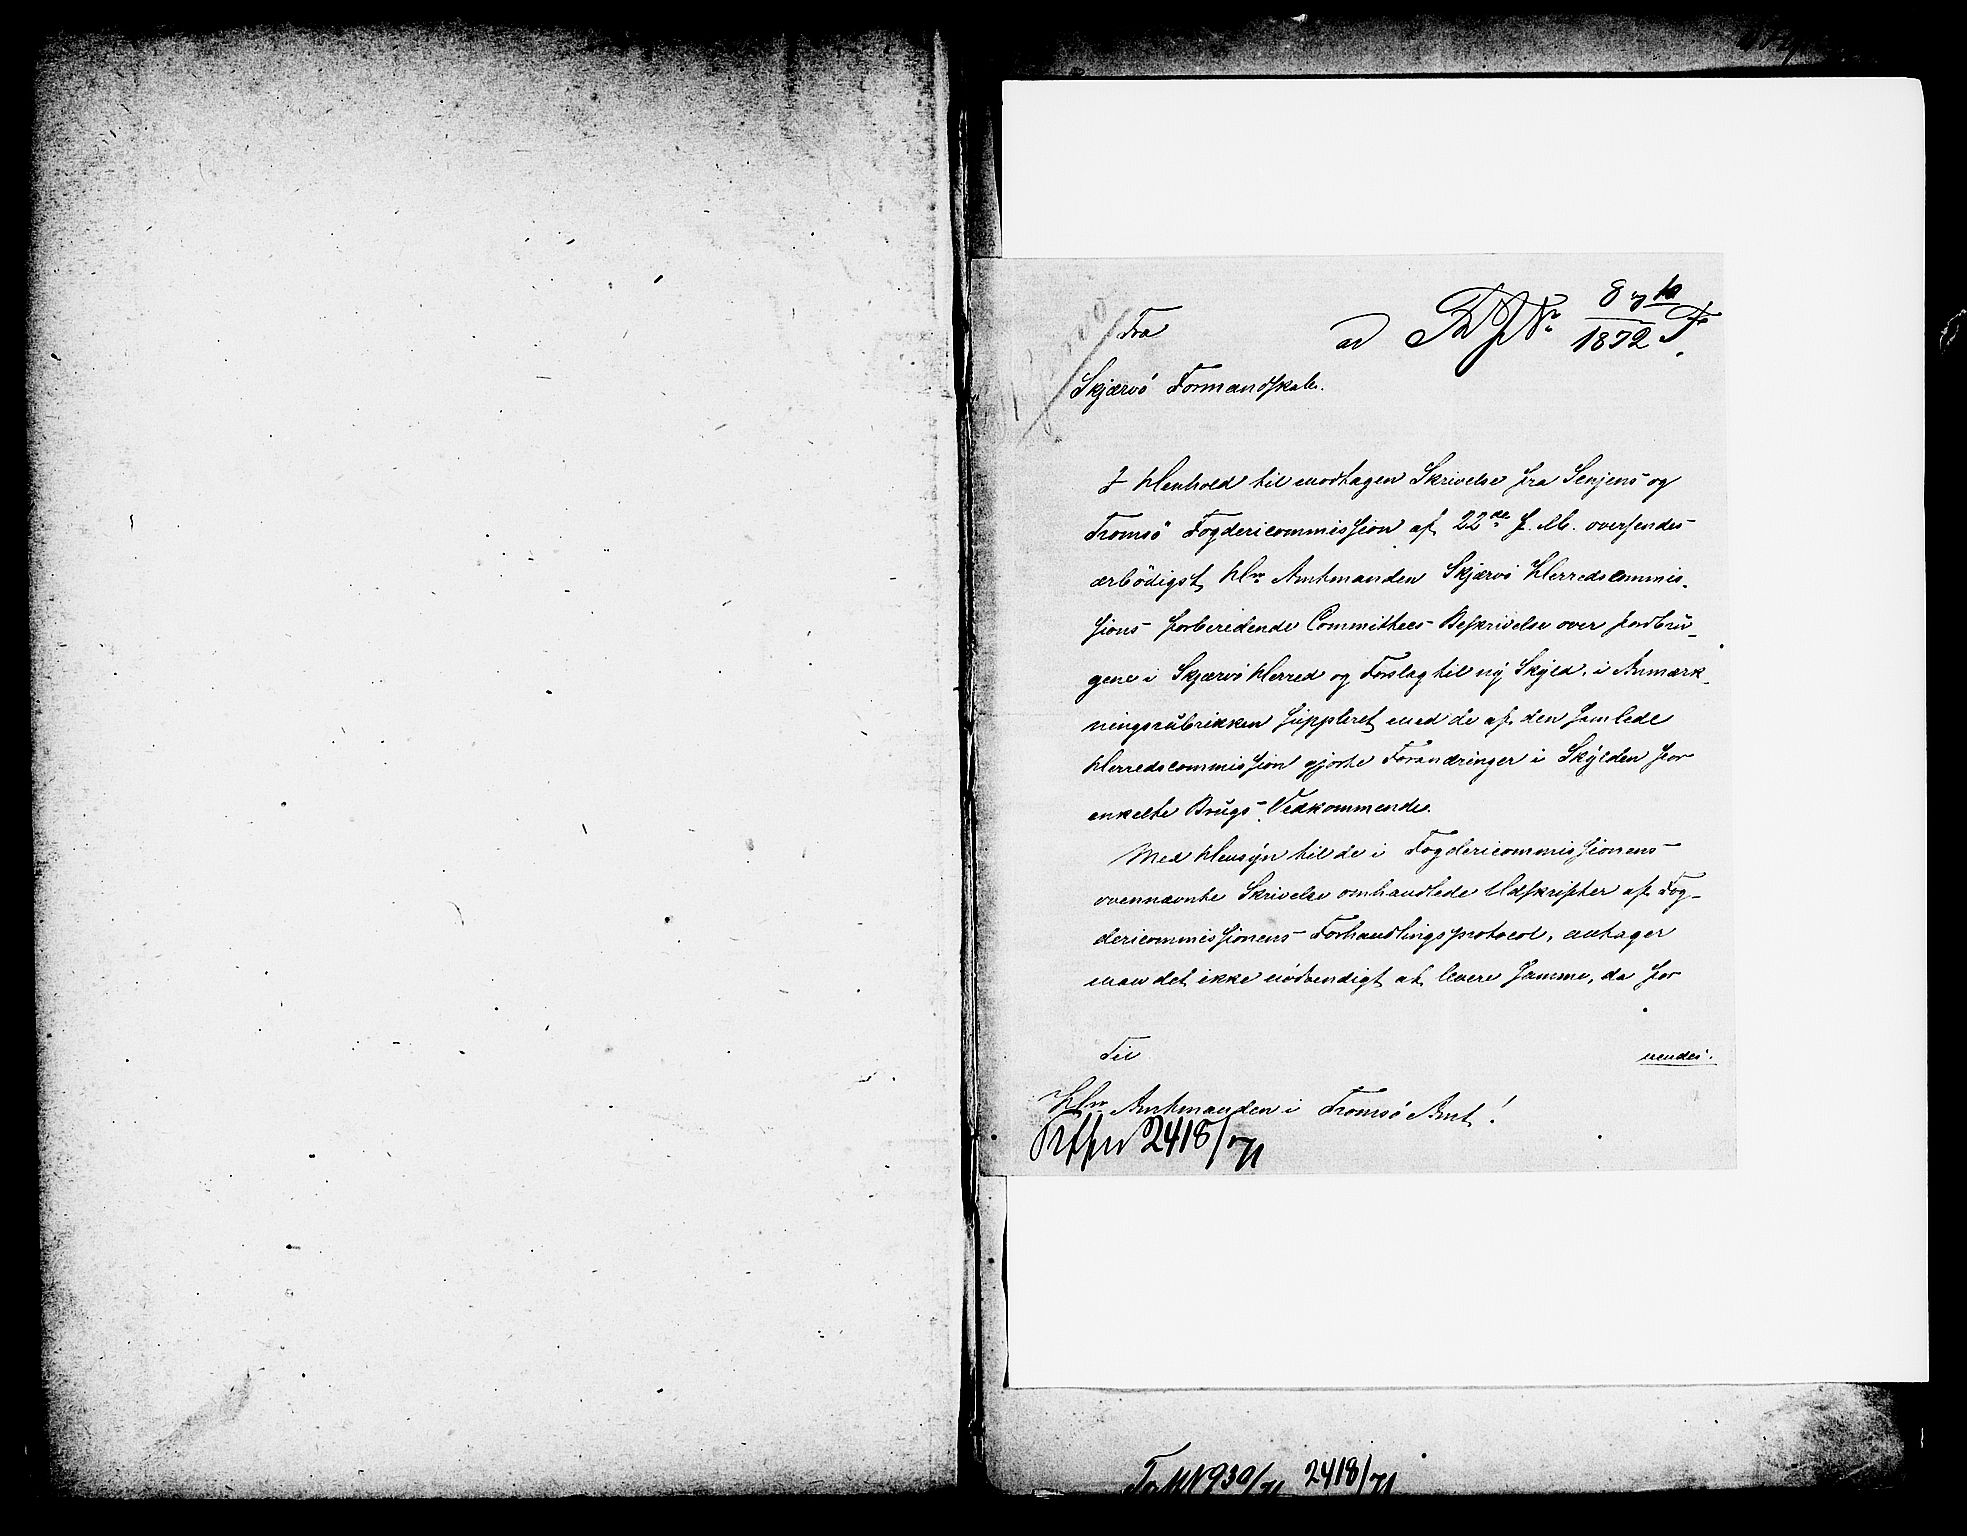 Fra
ad No 8 og 10
1872 F.
Skjærvö Formandskab.
I Henhold til modtagen Skrivelse fra Senjens og
Tromsö Fogdericommission af 22de f. M. oversendes
ærbödigst Hr Amtmanden Skjærvö Herredscommis-
sions forberedende Committees Beskrivelse over Jordbru-
gene i Skjærvö Herred og Forslag til ny Skyld, i Anmærk-
ningsrubrikken suppleret med de af den samlede
Herredscommission gjorte Forandringer i Skylden for
enkelte Brugs Vedkommende.
Med Hensyn til de i Fogdericommissionens
ovennævnte Skrivelse omhandlede Udskrifter af Fog-
dericommissionens Forhandlingsprotocol, antager
man det ikke nödvendigt at levere samme, da for
Til
vendes.
Hr Amtmanden i Tromsö Amt!
2418/71
930/71 2418/71